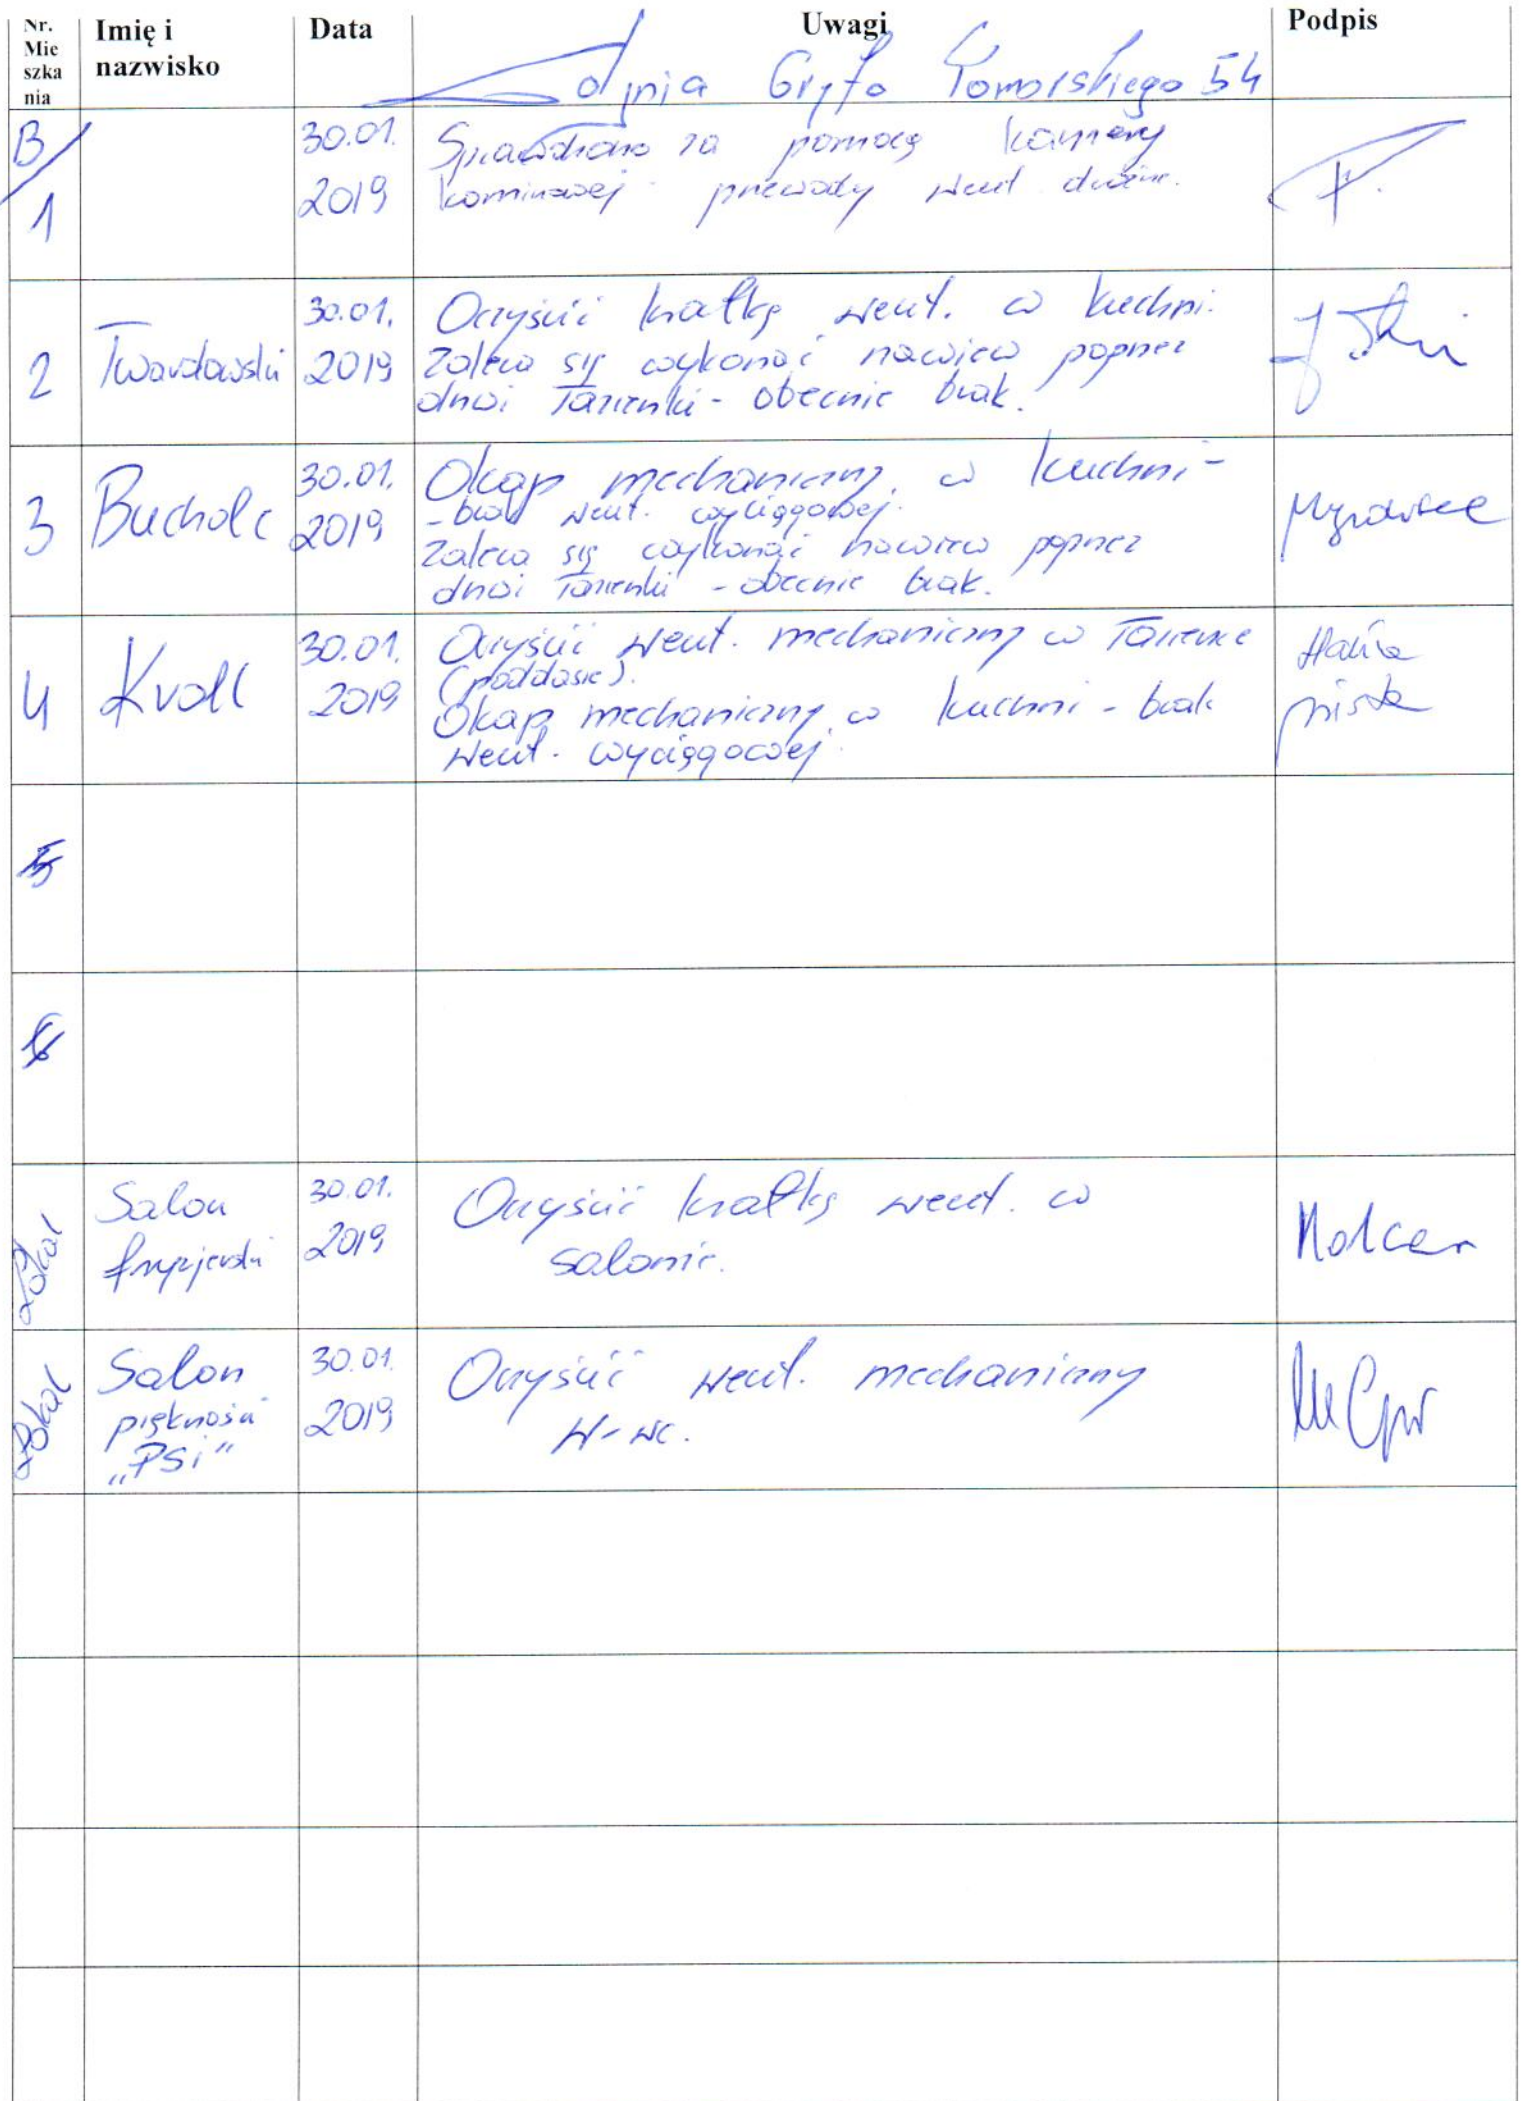 Nr. Mie szka nia Imię i nazwisko Data Uwagi Podpis
Gdynia Gryfa Pomorskiego 54
B/1 30.01. 2019 Sprawdzono za pomocą kamery
kominowej przewody went. drożne.
2 Twardawski 30.01. 2019 Oczyścić kratkę went. w kuchni.
Zaleca się wykonać nawiew poprzez
drzwi łazienki - obecnie brak.
3 Bucholc 30.01. 2019 Okap mechaniczny w kuchni -
- brak went. wyciągowej.
Zaleca się wykonać nawiew poprzez
drzwi łazienki - obecnie brak.
4 Kroll 30.01. 2019 Oczyścić went. mechaniczny w łazience
(poddasze).
Okap mechaniczny w kuchni - brak
went. wyciągowej.
5
6
Lokal Salon fryzjerski 30.01. 2019 Oczyścić kratkę went. w
salonie.
Lokal Salon piękności „PSi” 30.01. 2019 Oczyścić went. mechaniczny
w-wc.